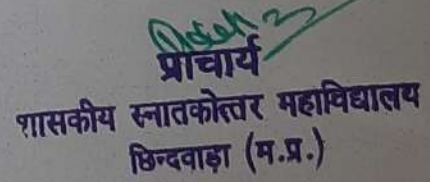 प्राचार्य
शासकीय स्नातकोत्तर महाविद्यालय
छिन्दवाड़ा (म.प्र.)